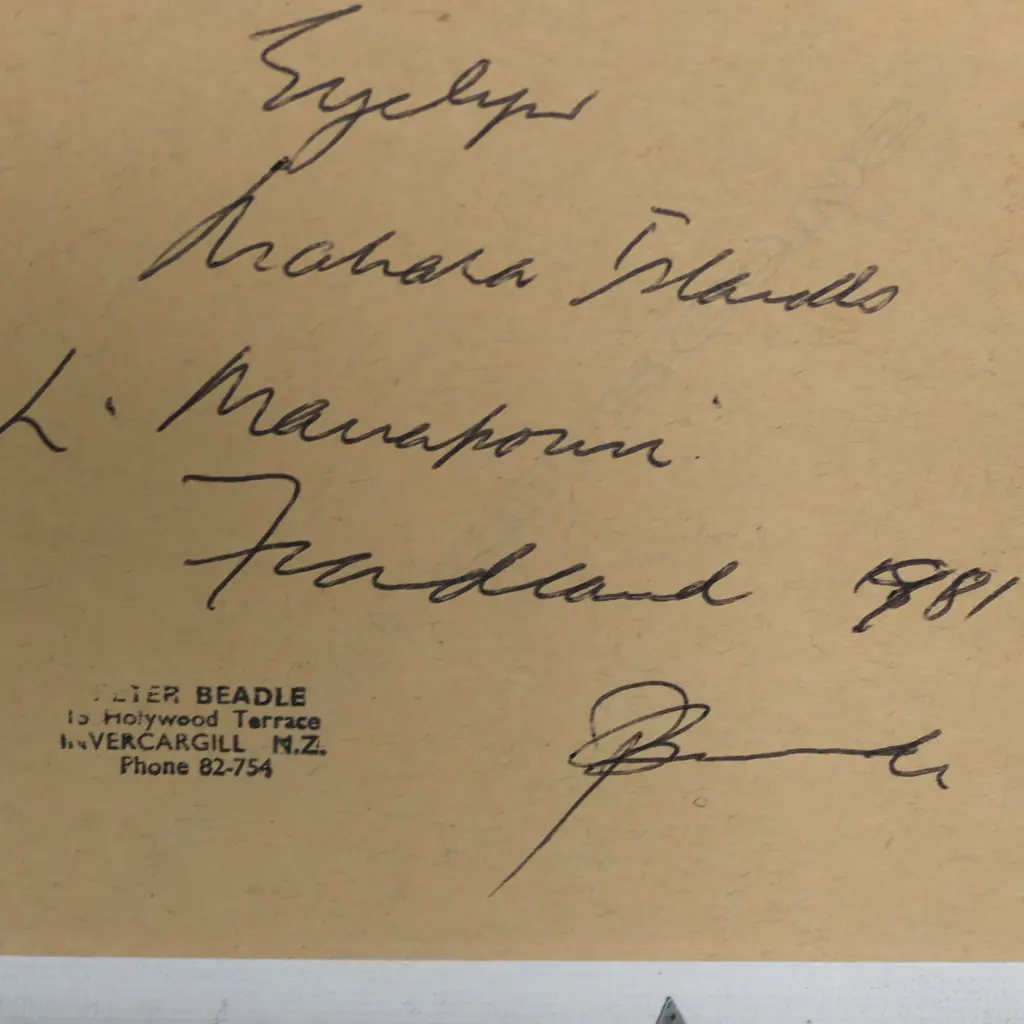 Mahara Islands
L. Manapouri
Fiordland 1981
PETER BEADLE
15 Holywood Terrace
INVERCARGILL N.Z.
Phone 82-754